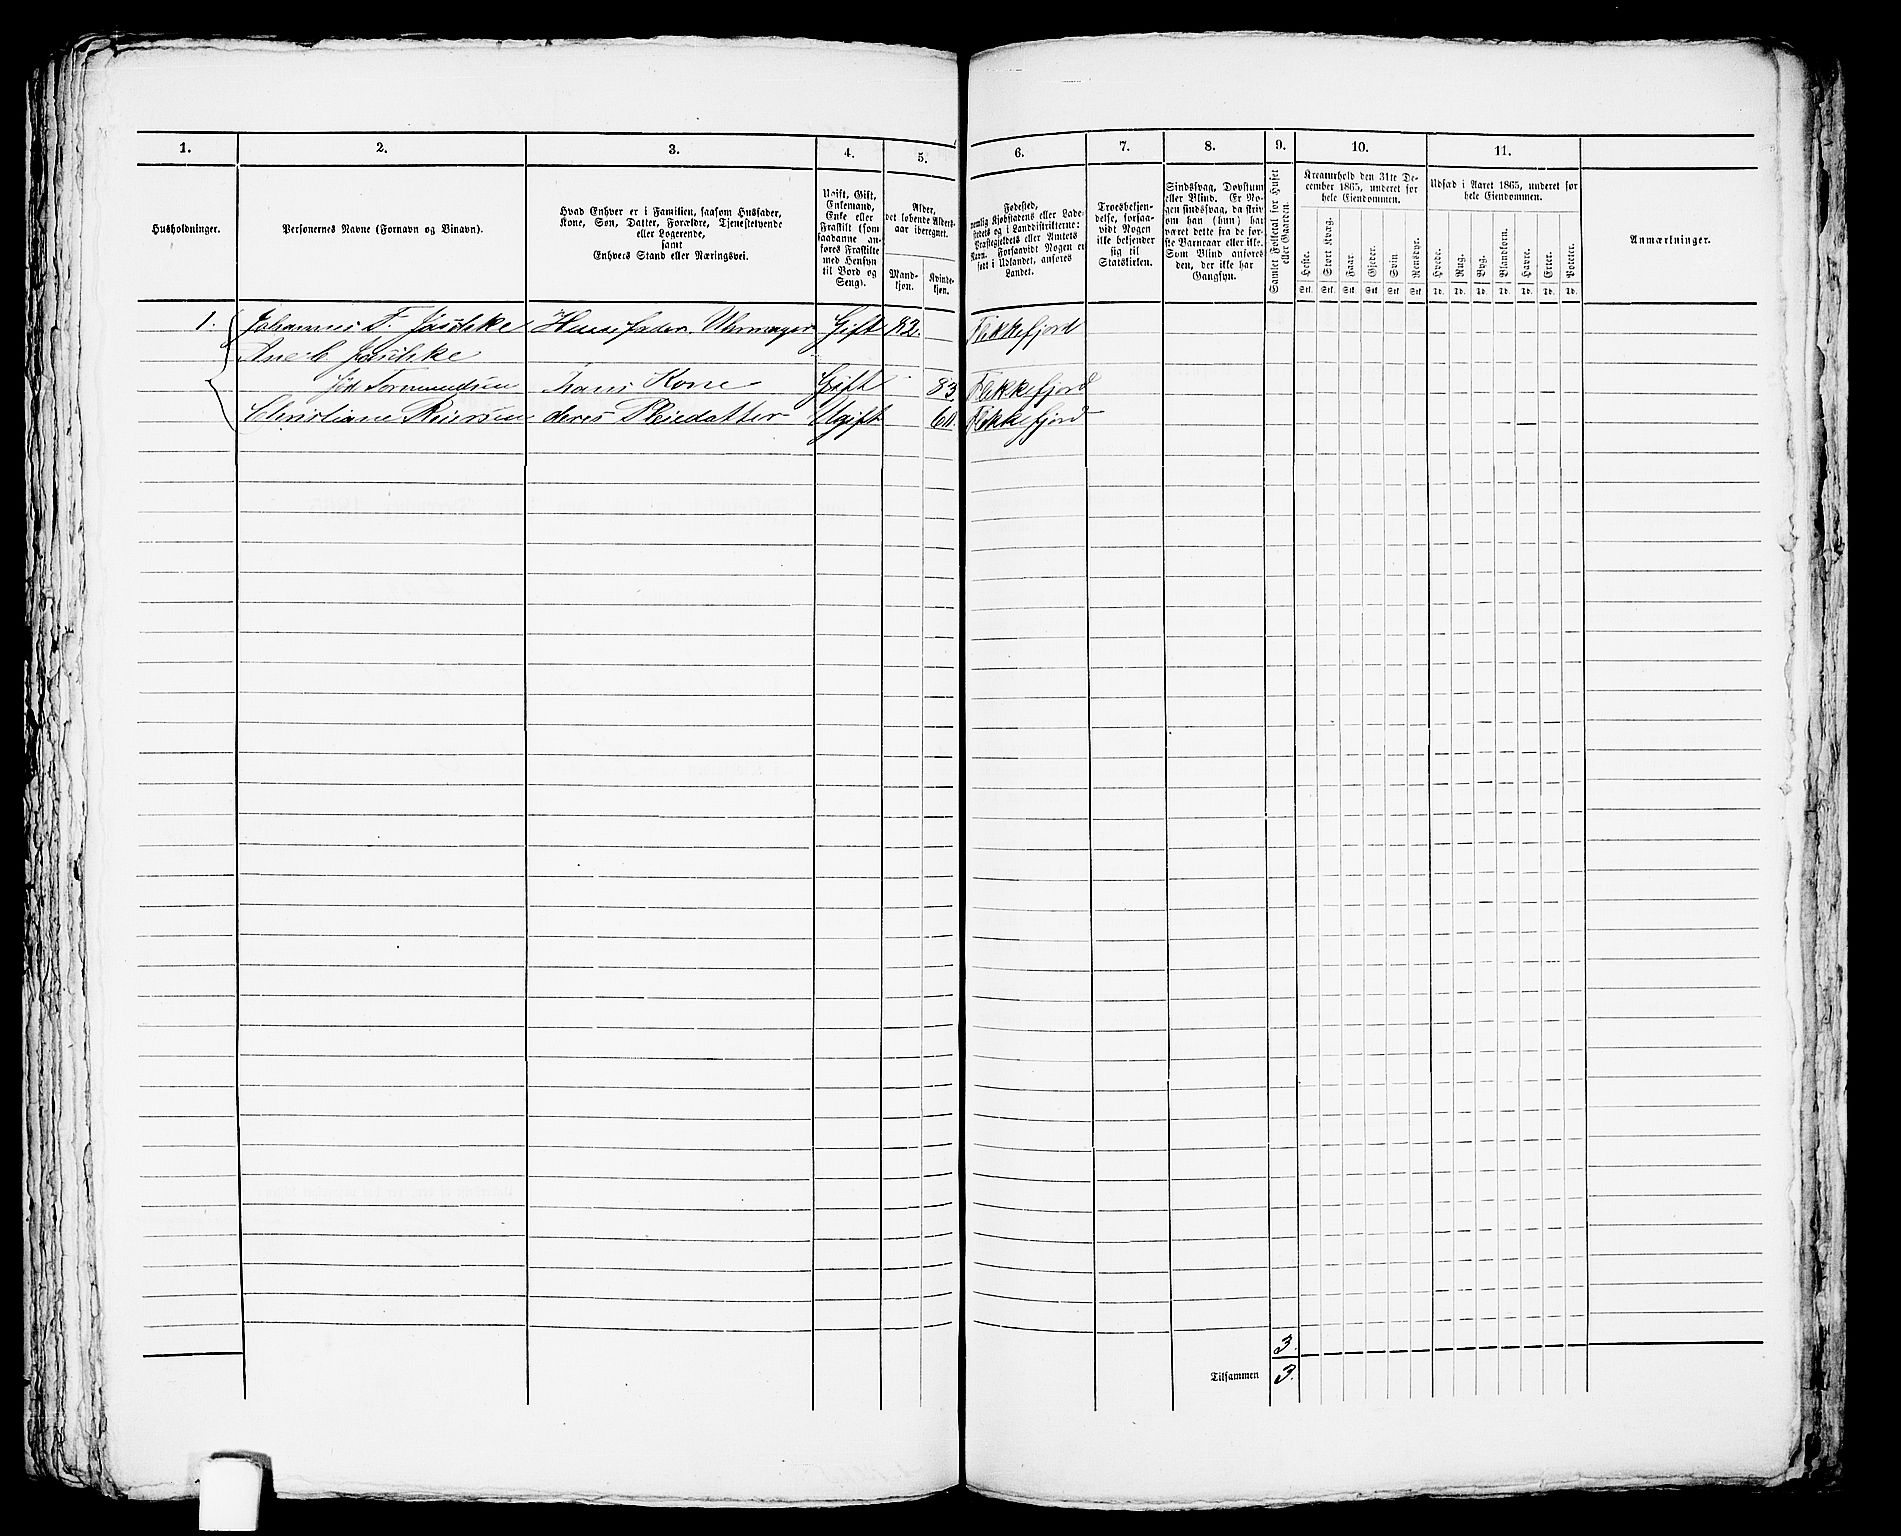 1. 2. 3. 4. 5. 6. 7. 8. 9. 10. 11.
Husholdninger.
Personernes Navne (Fornavn og Binavn).
Hvad Enhver er i Familien, saasom Husfader,
Kone, Søn, Datter, Forældre, Tjenestetyende
eller Logerende,
samt
Enhvers Stand eller Næringsvei.
Ugift, Gift,
Enkemand,
Enke eller
Fraskilt (som
saadanne an-
føres Fraskilte
med Hensyn
til Bord og
Seng).
Alder,
det løbende Alders-
aar iberegnet.
Mand-
kjøn.
Kvinde-
kjøn.
Fødested,
nemlig Kjøbstadens eller Lade-
stedets og i Landdistrikterne:
Præstegjeldets eller Amtets
Navn. Forsaavidt Nogen er
født i Udlandet, anføres
Landet.
Troesbekjen-
delse, forsaa-
vidt Nogen
ikke bekjender
sig til
Statskirken.
Sindssvag, Døvstum
eller Blind. Er No-
gen sindssvag, da skriv
om han (hun) har
været dette fra de før-
ste Barneaar eller ikke.
Som Blind anføres
den, der ikke har
Gangsyn.
Samlet Folketal for Huset
eller Gaarden.
Kreaturhold den 31te De-
cember 1865, underet for
hele Eiendommen.
Heste. Stort Kvæg. Faar. Gjeder. Svin. Rensdyr.
Stk. Stk. Stk. Stk. Stk. Stk.
Udsæd i Aaret 1865, underet for
hele Eiendommen.
Hvede. Rug. Byg. Blandkorn. Havre. Erter. Poteter.
Td. Td. Td. Td. Td. Td. Td.
Anmærkninger.
1. Johannes F. Jaschke Husfader. Uhrmager Gift 82. Flekkefjord
Jaschke
fød Tormundsen hans Kone Gift 83. Flekkefjord
Christiane Reiersen deres Pleiedatter Ugift 60. Flekkefjord
3.
Tilsammen 3.